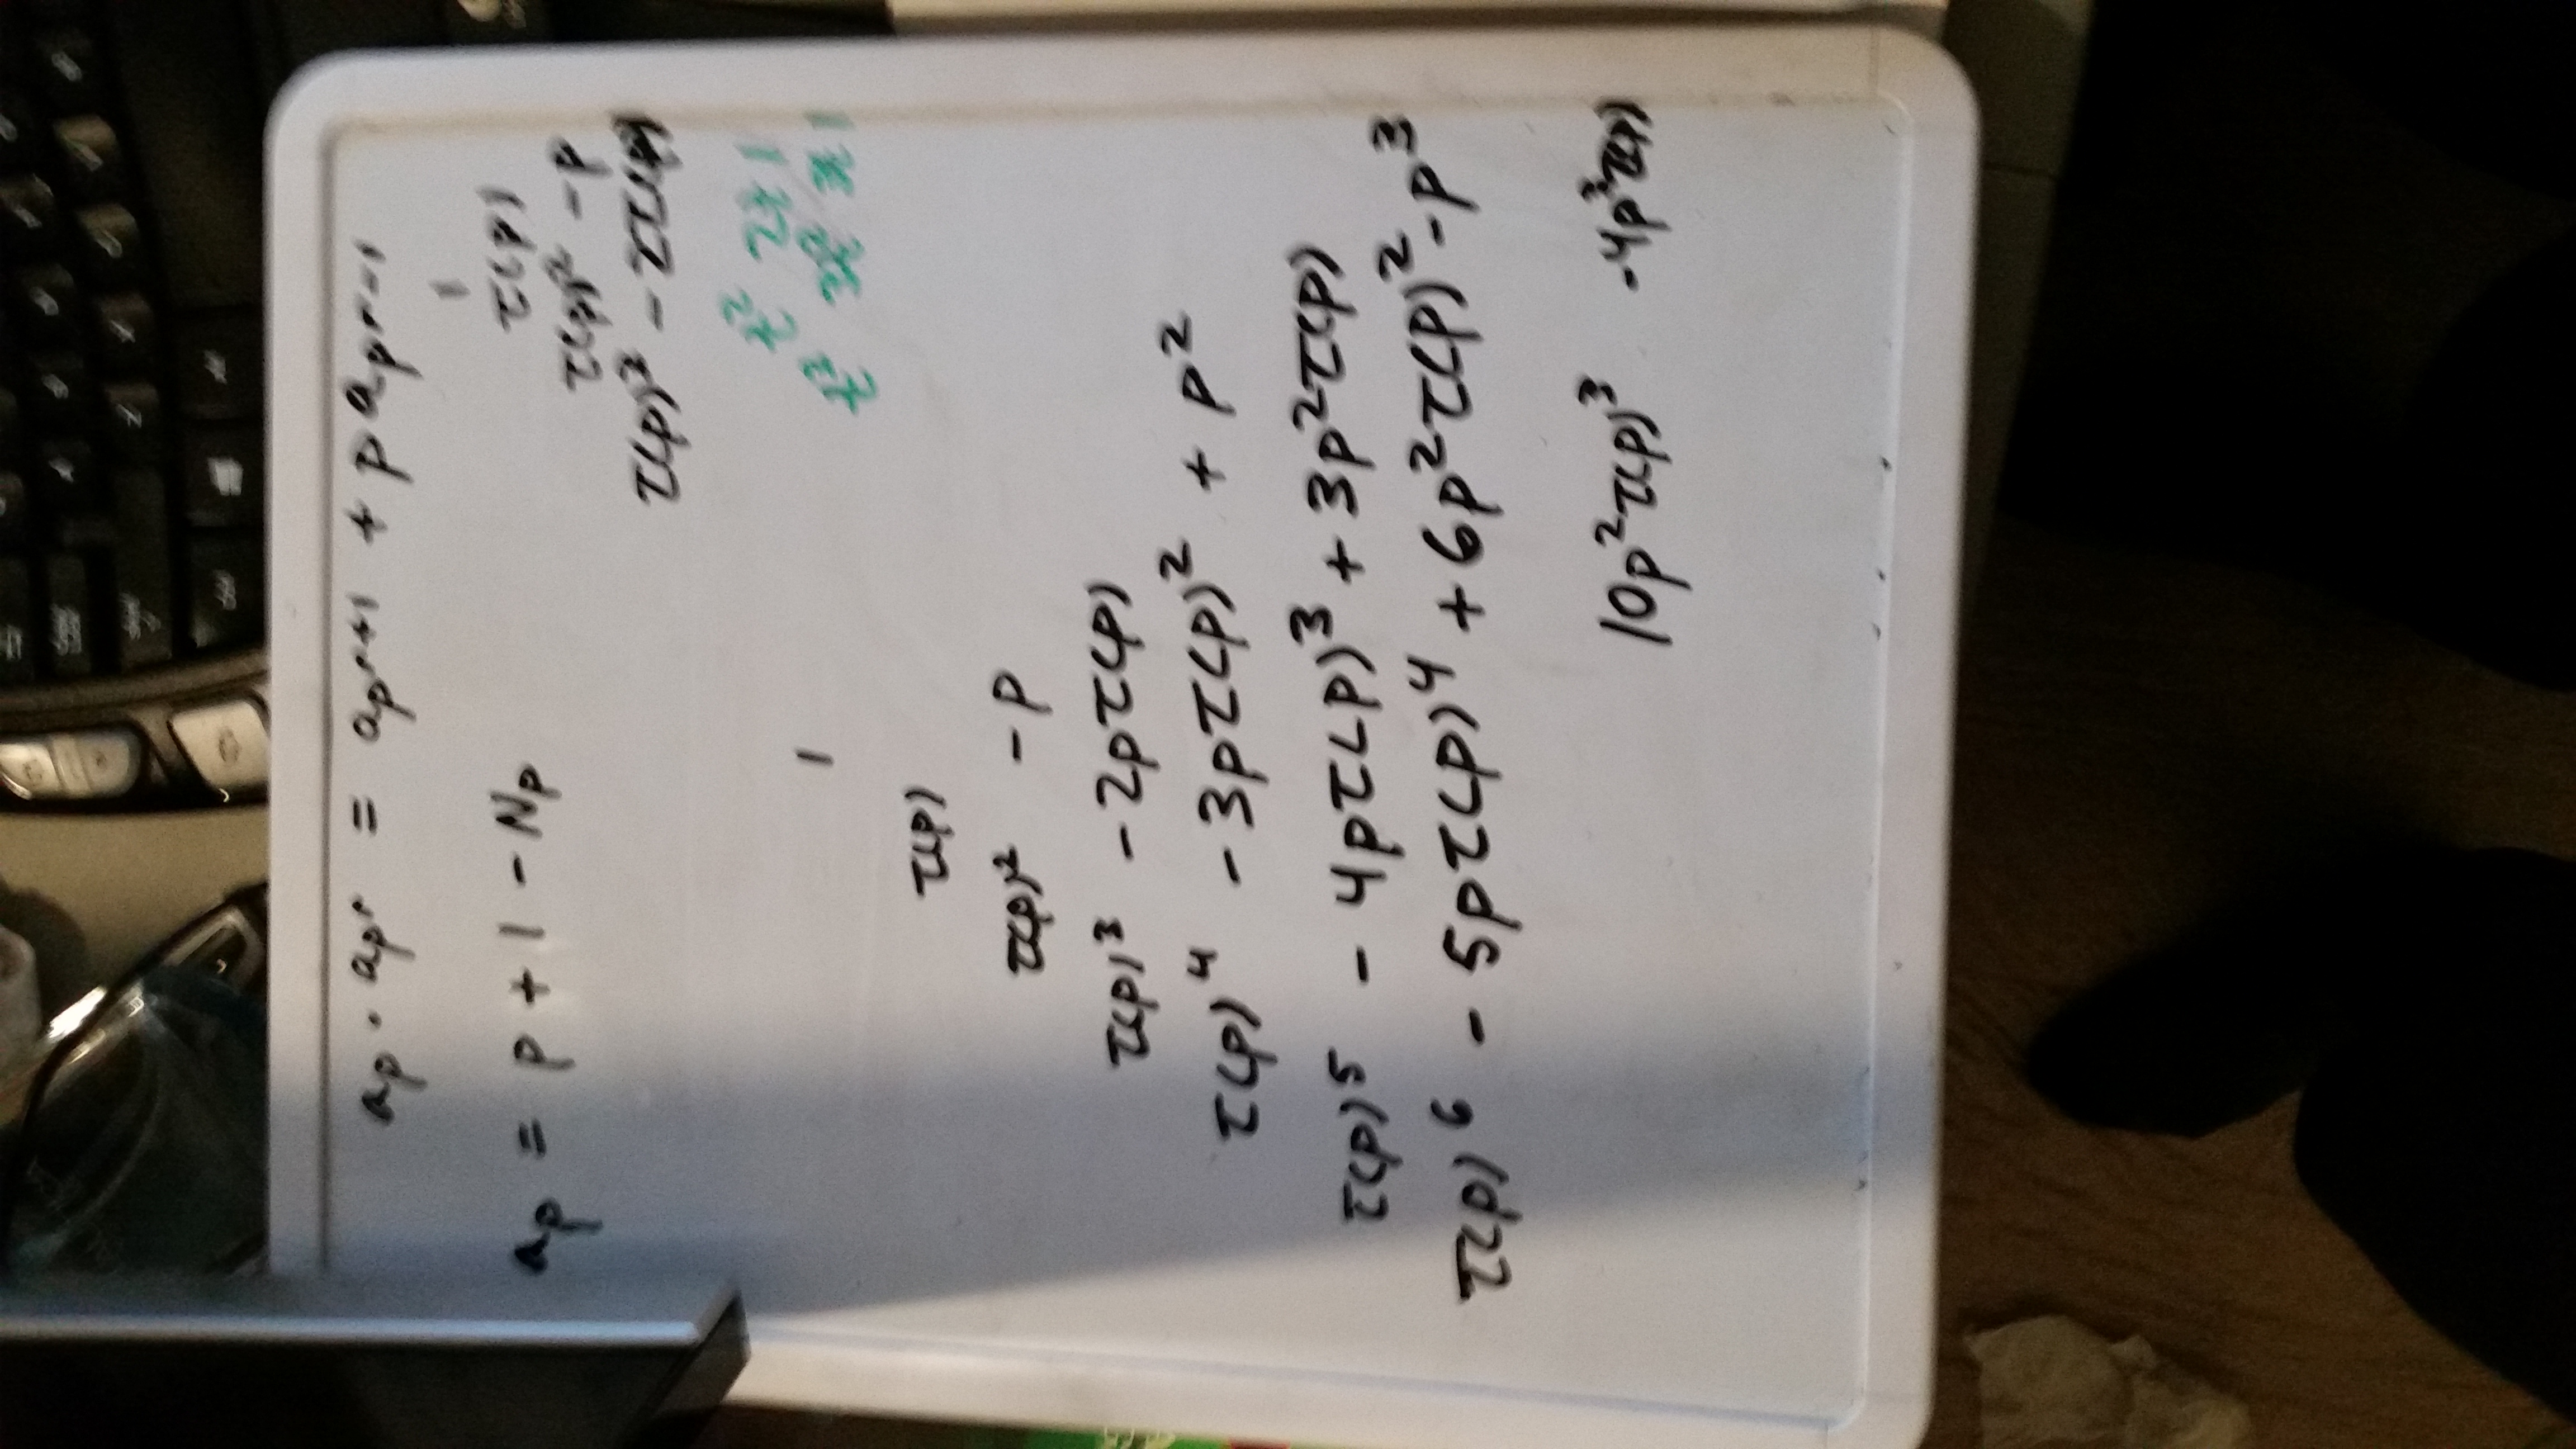 a_p · a_{p^r} = a_{p^{r+1}} + p a_{p^{r-1}}
1
τ(p)
a_p = p + 1 - N_p
τ(p)² - p
τ(p)³ - 2τ(p)
t² 2t 1
t³ 3t² 3t 1
1
τ(p)
τ(p)² - p
τ(p)³ - 2pτ(p)
τ(p)⁴ - 3pτ(p)² + p²
τ(p)⁵ - 4pτ(p)³ + 3p²τ(p)
τ(p)⁶ - 5pτ(p)⁴ + 6p²τ(p)² - p³
10p²τ(p)³ -4p³τ(p)